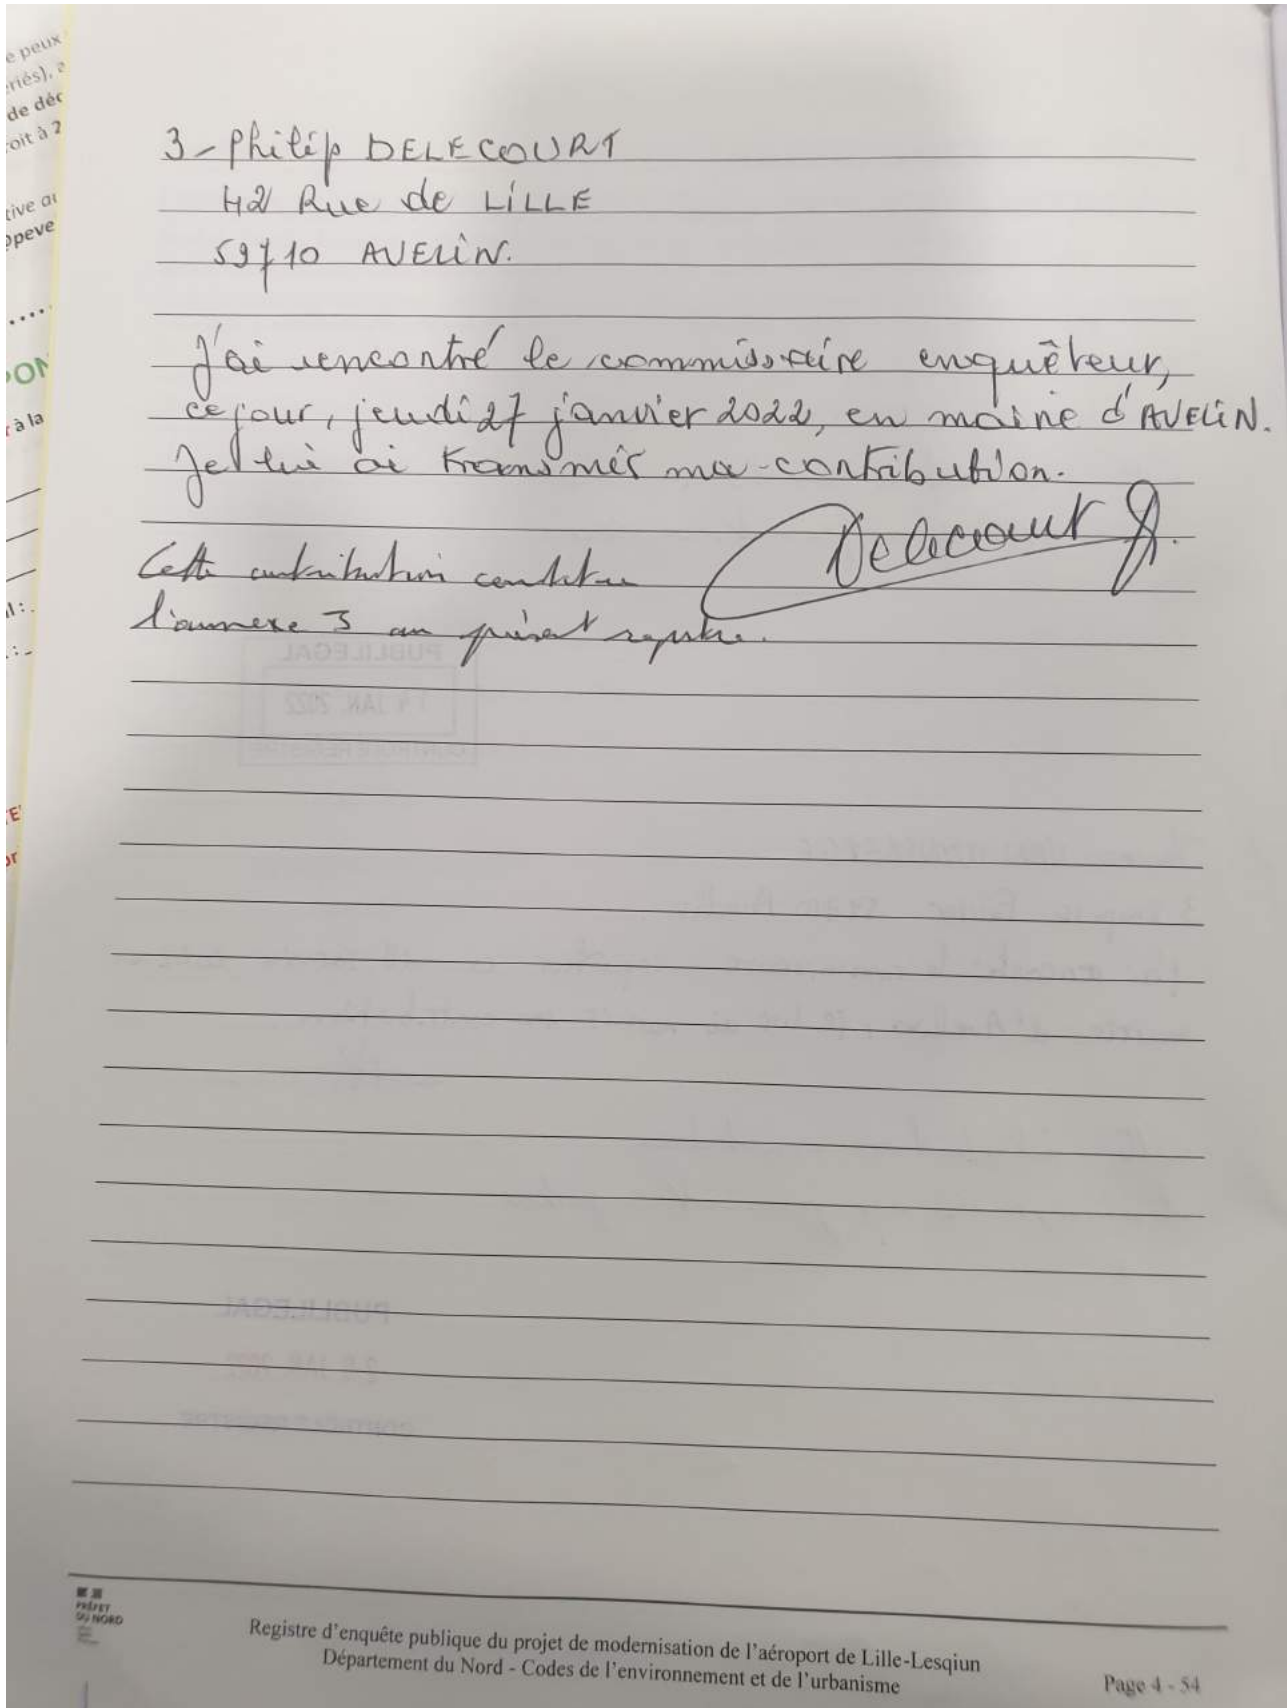 e peux
riés), a
de déc
oit à 2
tive au
ppeve
.....
PON
r à la
al :.
. : _
TE
or
3 - Philip DELECOURT
42 Rue de LILLE
59710 AVELIN.
J'ai rencontré le commissaire enquêteur,
ce jour, jeudi 27 janvier 2022, en mairie d'AVELIN.
Je lui ai transmis ma contribution.
Delecourt
Cette contribution constitue
l'annexe 3 au présent registre.
PUBLILEGAL
14 JAN. 2022
PUBLILEGAL
JAN. 2022
PRÉFET
DU NORD
Registre d'enquête publique du projet de modernisation de l'aéroport de Lille-Lesqiun
Département du Nord - Codes de l'environnement et de l'urbanisme
Page 4 - 54